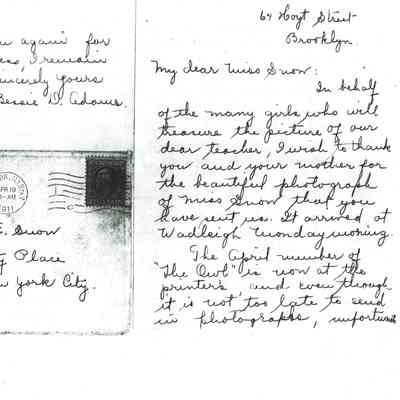 u again for
ess, I remain
incerely yours
Bessie D. Adams.
APR 10
-AM
1911
E. Snow
Place
w York City.
64 Hoyt Street
Brooklyn.
My dear Miss Snow:
In behalf
of the many girls who will
treasure the picture of our
dear teacher, I wish to thank
you and your mother for
the beautiful photograph
of Miss Snow that you
have sent us. It arrived at
Wadleigh Monday morning.
The April number of
"The Owl" is now at the
printer's, and even though
it is not too late to send
in photographs, unfortunate